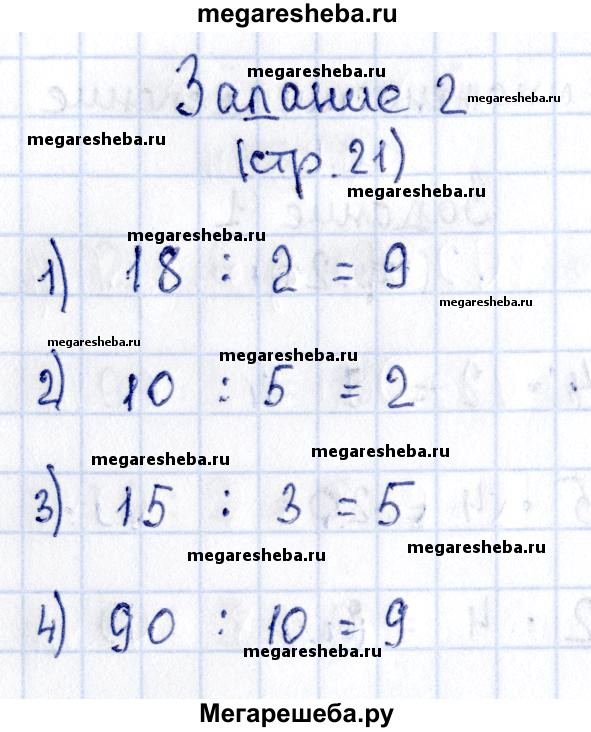 megaresheba.ru
megaresheba.ru
Задание 2
megaresheba.ru
megaresheba.ru
(стр. 21)
megaresheba.ru
megaresheba.ru
1) 18 : 2 = 9
megaresheba.ru
megaresheba.ru
megaresheba.ru
2) 10 : 5 = 2
megaresheba.ru
megaresheba.ru
3) 15 : 3 = 5
megaresheba.ru
megaresheba.ru
4) 90 : 10 = 9
megaresheba.ru
Мегарешеба.ру